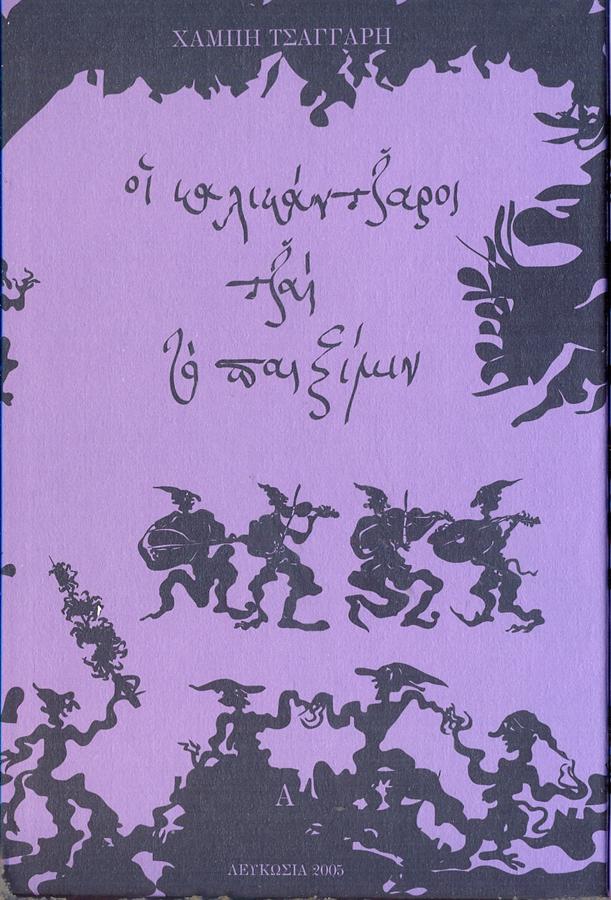 ΧΑΜΠΗ ΤΣΑΓΓΑΡΗ
οἱ καλικάντζ̌αροι
τζ̌αὶ
τὸ παιξίμιν
Α
ΛΕΥΚΩΣΙΑ 2005